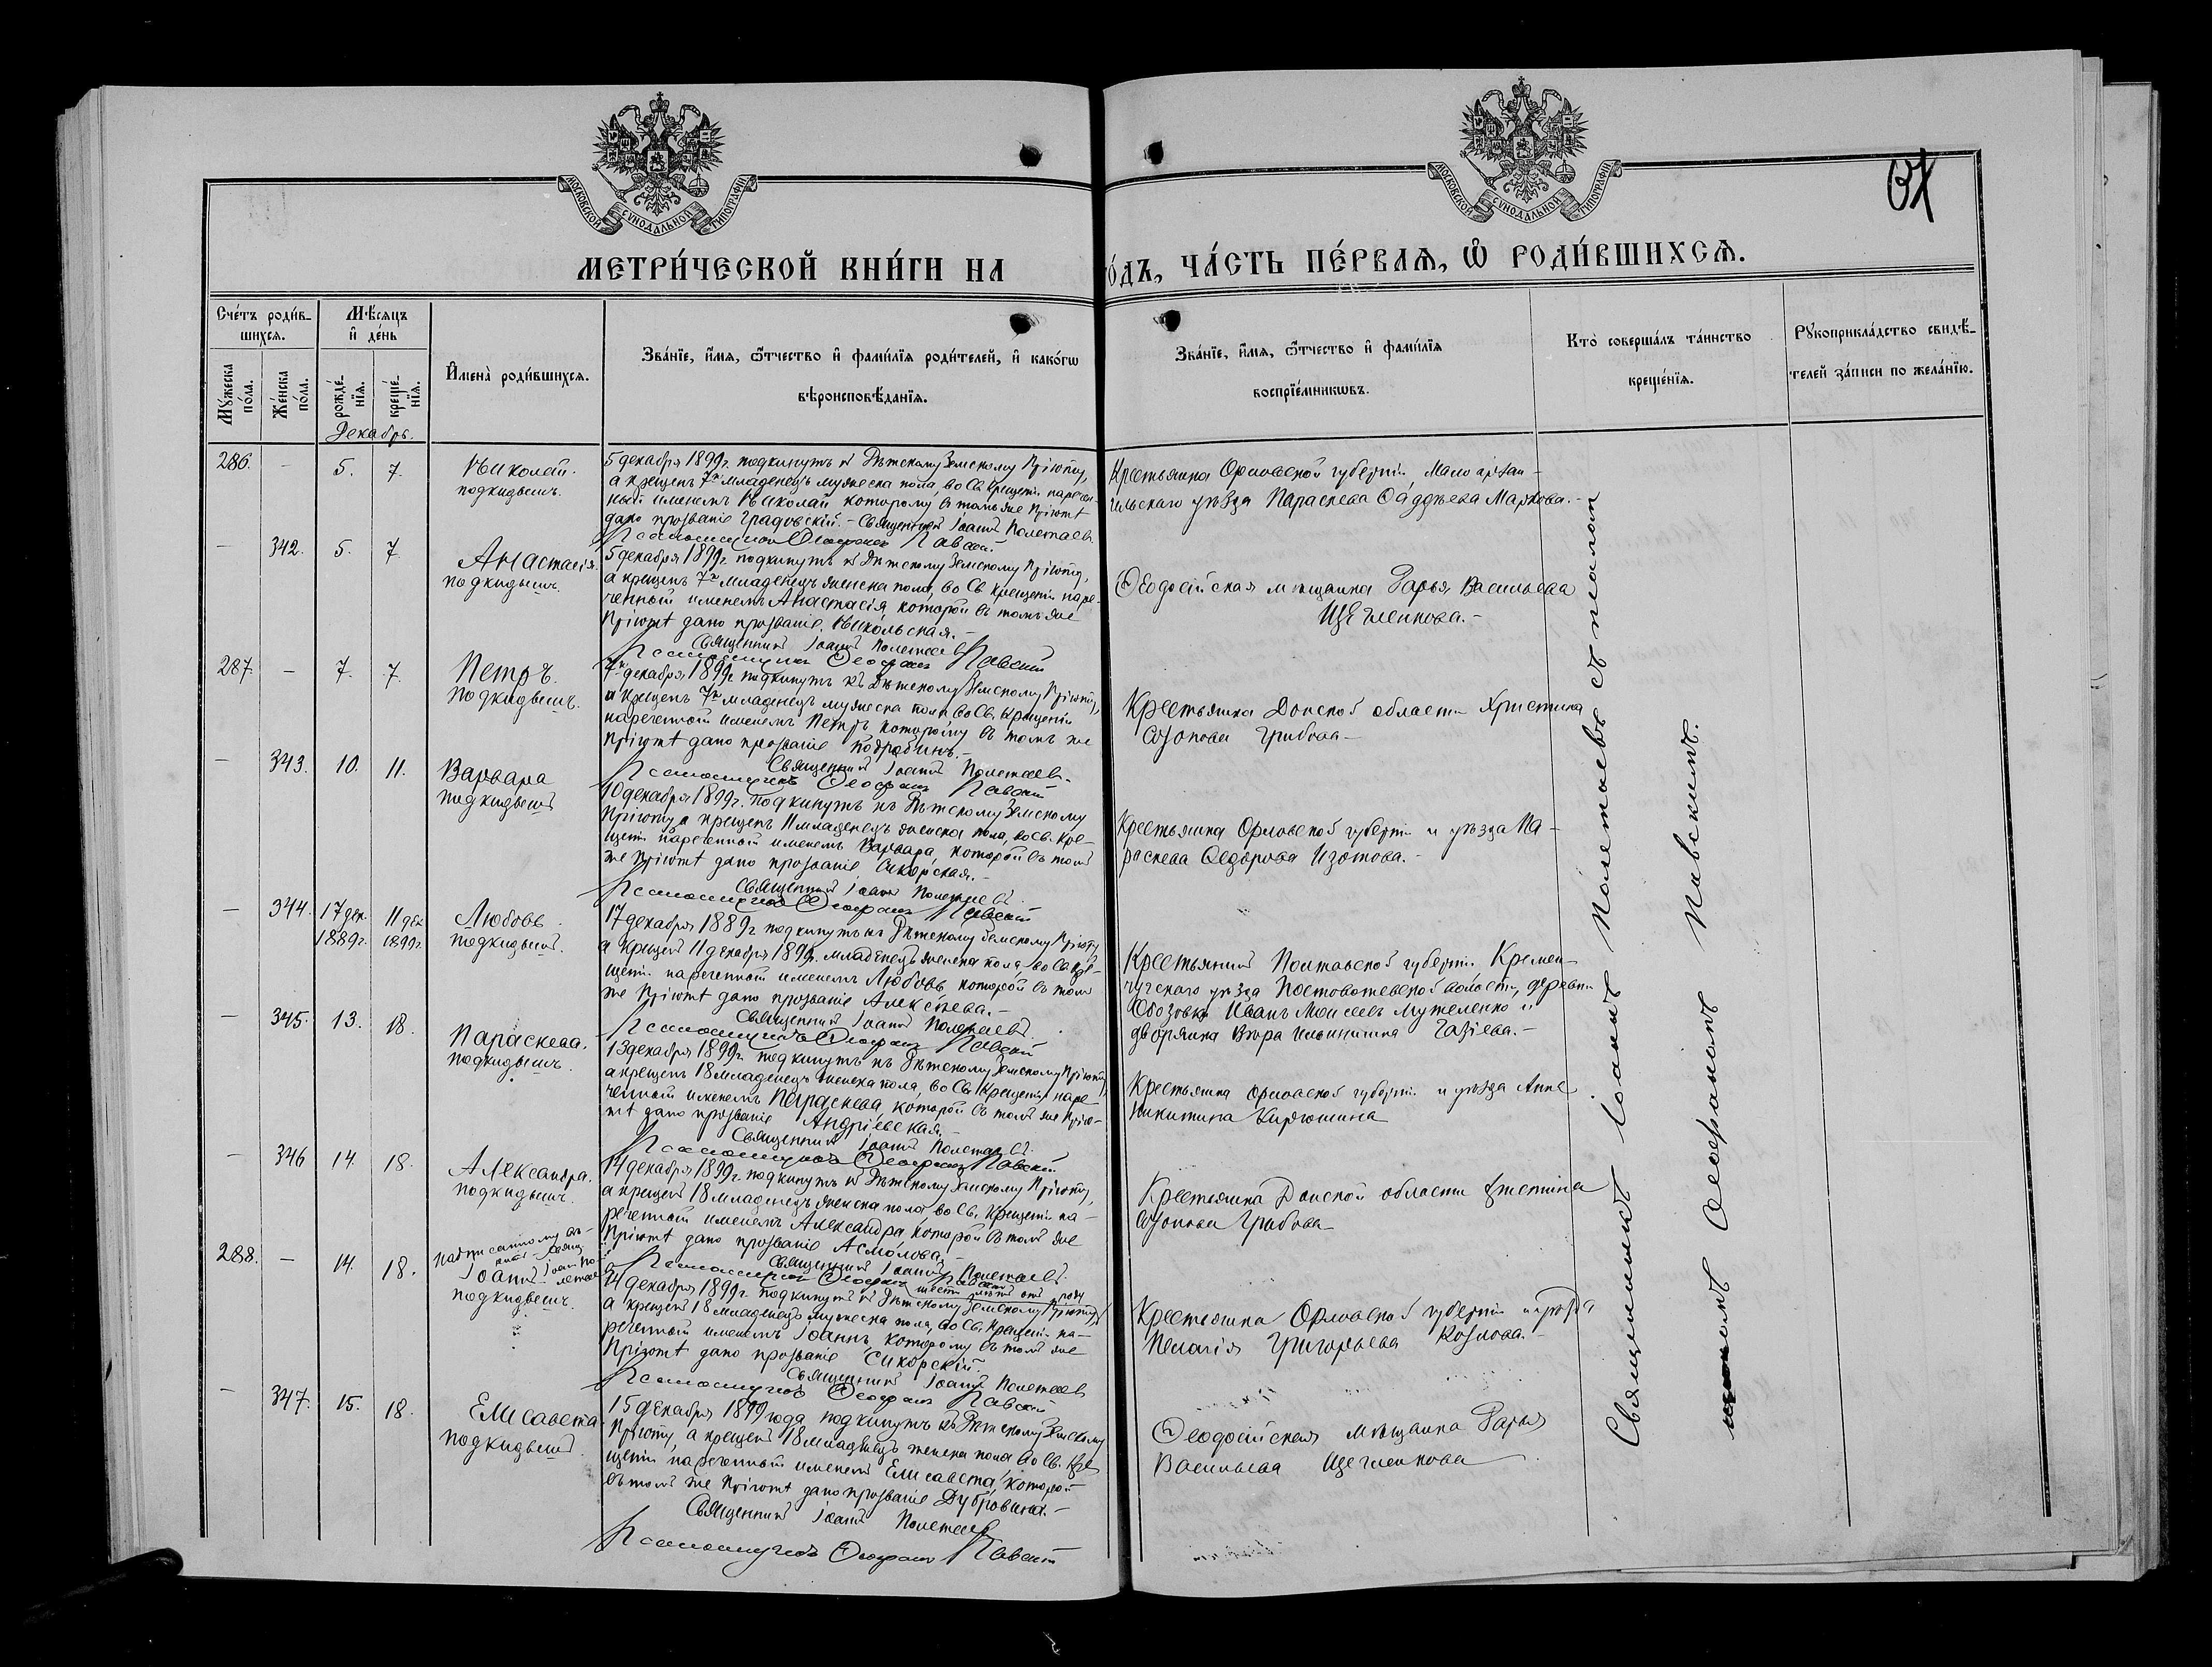 МОСКОВСКОЙ СѴНОДАЛЬНОЙ ТИПОГРАФІИ
МОСКОВСКОЙ СѴНОДАЛЬНОЙ ТИПОГРАФІИ
МЕТРИ́ЧЕСКОЙ КНИ́ГИ НА
О́ДЪ, ЧА́СТЬ ПЕ́РВАѦ, Ѡ РОДИ́ВШИХСѦ.
Сче́тъ роди́в-
шихсѧ.
Мѣ́сѧцъ
и҆ де́нь
Му́жеска
по́ла.
Же́нска
по́ла.
рожде́-
нїѧ.
креще́-
нїѧ.
Декабрь.
И҆мена̀ роди́вшихсѧ.
Зва́нїе, и҆́мѧ, ѻ҆́тчество и҆ фами́лїѧ роди́телей, и҆ како́гѡ
вѣроисповѣ́данїѧ.
Зва́нїе, и҆́мѧ, ѻ҆́тчество и҆ фами́лїѧ
воспрїе́мникѡвъ.
Кто̀ соверша́лъ та́инство
креще́нїѧ.
Рꙋкоприкла́дство свидѣ́-
телей за́писи по жела́нїю.
286. - 5. 7.
Николай.
подкидышъ.
5 декабря 1899г. подкинутъ къ Дѣтскому Земскому Пріюту,
а крещенъ 7го младенецъ мужеска пола, во Св. Крещеніи наречен-
ный именемъ Николай которому въ томъ же Пріютѣ
дано прозваніе Градовскій. - Священникъ Іоаннъ Полетаевъ.
Псаломщикъ Ѳеофанъ Павскій.
Крестьянка Орловской губерніи, Малоархан-
гельскаго уѣзда Параскева Маркова. -
- 342. 5. 7.
Анастасія.
подкидышъ.
5 декабря 1899г. подкинутъ къ Дѣтскому Земскому Пріюту,
а крещенъ 7го младенецъ женска пола, во Св. Крещеніи наре-
ченный именемъ Анастасія, которой въ томъ же
Пріютѣ дано прозваніе Никольская. -
Священникъ Іоаннъ Полетаевъ
Псаломщикъ Ѳеофанъ Павскій
Ѳеодосійская мѣщанка Дарья Васильева
Щегленкова. -
287. - 7. 7.
Петръ.
подкидышъ.
7го декабря 1899г. подкинутъ къ Дѣтскому Земскому Пріюту,
а крещенъ 7го младенецъ мужеска пола во Св. Крещеніи
нареченный именемъ Петръ, которому въ томъ же
Пріютѣ дано прозваніе -
Священникъ Іоаннъ Полетаевъ.
Псаломщикъ Ѳеофанъ Павскій
Крестьянка Донской области Христина
Созонова Грибова -
- 343. 10. 11.
Варвара
подкидышъ
10 декабря 1899г. подкинутъ къ Дѣтскому Земскому
Пріюту, а крещенъ 11 младенецъ женска пола, во Св. Кре-
щеніи нареченный именемъ Варвара, которой въ томъ
же Пріютѣ дано прозваніе Сикорская. -
Священникъ Іоаннъ Полетаевъ.
Псаломщикъ Ѳеофанъ Павскій
Крестьянка Орловской губерніи и уѣзда Па-
раскева Ѳедорова Изотова. -
- 344. 17 дек. 1889г. 11 дек. 1899г.
Любовь.
подкидышъ.
17 декабря 1889г подкинутъ къ Дѣтскому Земскому Пріюту
а крещенъ 11 декабря 1899г. младенецъ женска пола, во Св. Кре-
щеніи нареченный именемъ Любовь, которой въ томъ
же Пріютѣ дано прозваніе Алексѣева. -
Священникъ Іоаннъ Полетаевъ.
Псаломщикъ Ѳеофанъ Павскій
Крестьянинъ Полтавской губерніи Кремен-
чугскаго уѣзда волости, деревни
Иванъ Моисеевъ и
дворянка Вѣра Ильинишна -
- 345. 13. 18.
Параскева.
подкидышъ.
13 декабря 1899г. подкинутъ къ Дѣтскому Земскому Пріюту,
а крещенъ 18 младенецъ женска пола, во Св. Крещеніи наре-
ченный именемъ Параскева, которой въ томъ же Прію-
тѣ дано прозваніе Андріевская. -
Священникъ Іоаннъ Полетаевъ.
Псаломщикъ Ѳеофанъ Павскій
Крестьянка Орловской губерніи и уѣзда Анна
Никитина Кирюшина
- 346 14. 18.
Александра.
подкидышъ.
14 декабря 1899г. подкинутъ къ Дѣтскому Земскому Пріюту,
а крещенъ 18 младенецъ женска пола во Св. Крещеніи на-
реченный именемъ Александра, которой въ томъ же
Пріютѣ дано прозваніе Асмолова. -
Священникъ Іоаннъ Полетаевъ.
Псаломщикъ Ѳеофанъ Павскій
Крестьянка Донской области Христина
Созонова Грибова -
288. - 14. 18.
Іоаннъ
подкидышъ.
шести лѣтъ отъ роду
14 декабря 1899г. подкинутъ къ Дѣтскому Земскому Пріюту,
а крещенъ 18 младенецъ мужеска пола, во Св. Крещеніи на-
реченный именемъ Іоаннъ, которому въ томъ же
Пріютѣ дано прозваніе Сикорскій.
Священникъ Іоаннъ Полетаевъ
Псаломщикъ Ѳеофанъ Павскій
Крестьянка Орловской губерніи и уѣзда
Пелагія Григорьева Козлова. -
- 347. 15. 18.
Елисавета
подкидышъ.
15 декабря 1899 года подкинутъ къ Дѣтскому Земскому
Пріюту, а крещенъ 18 младенецъ женска пола во Св. Кре-
щеніи нареченный именемъ Елисавета, которой
въ томъ же Пріютѣ дано прозваніе Дубровина. -
Священникъ Іоаннъ Полетаевъ
Псаломщикъ Ѳеофанъ Павскій
Ѳеодосійская мѣщанка Дарья
Васильева Щегленкова
Священникъ Іоаннъ Полетаевъ съ псалом-
щикомъ Ѳеофаномъ Павскимъ.